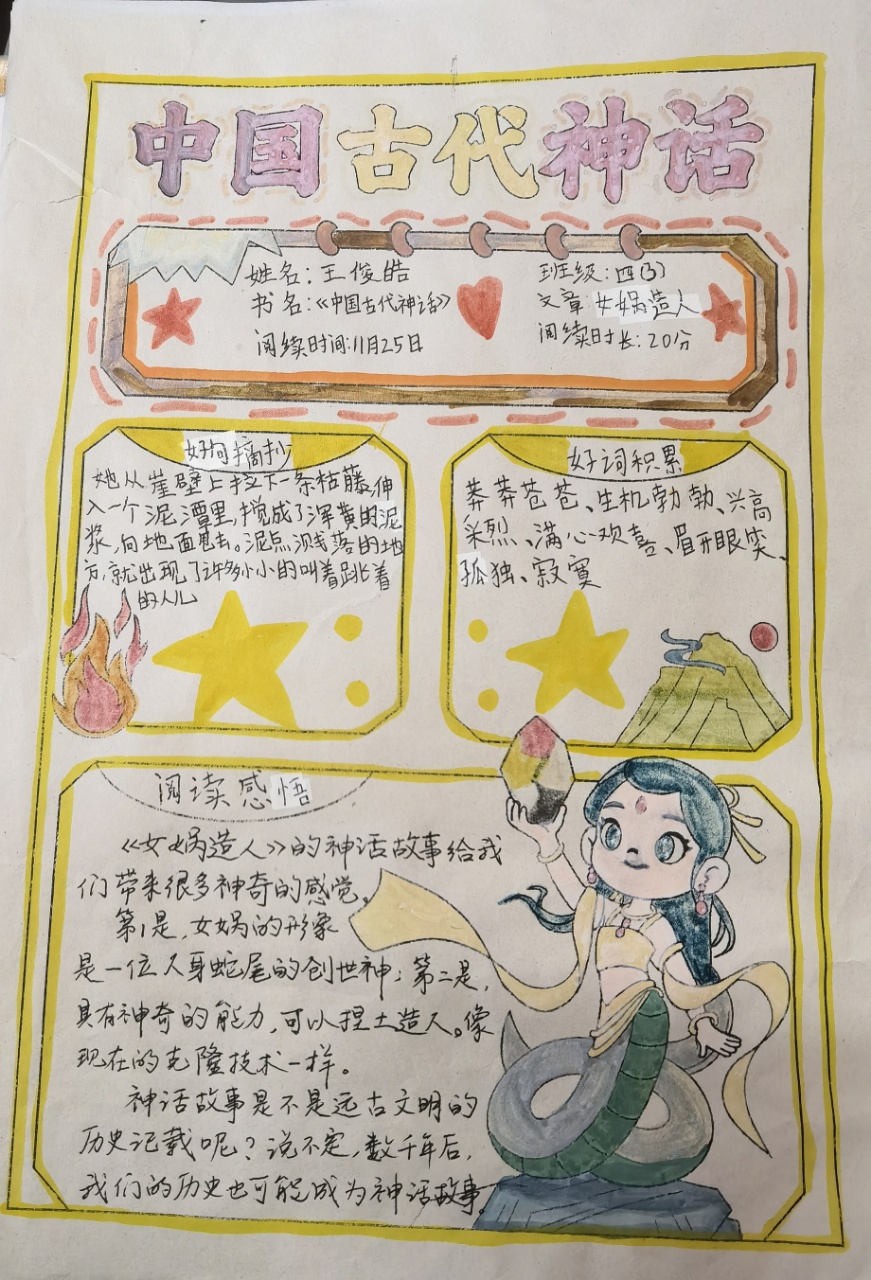 中国古代神话
姓名：王俊皓
班级：四(3)
书名：《中国古代神话》
文章：女娲造人
阅读时间：11月25日
阅读时长：20分
好句摘抄
她从崖壁上挖下一条枯藤，伸
入一个泥潭里，搅成了浑黄的泥
浆，向地面甩去。泥点溅落的地
方，就出现了许多小小的叫着跳着
的人儿
好词积累
莽莽苍苍、生机勃勃、兴高
采烈、满心欢喜、眉开眼笑、
孤独、寂寞
阅读感悟
《女娲造人》的神话故事给我
们带来很多神奇的感觉。
第1是，女娲的形象
是一位人身蛇尾的创世神；第二是，
具有神奇的能力，可以捏土造人。像
现在的克隆技术一样。
神话故事是不是远古文明的
历史记载呢？说不定，数千年后，
我们的历史也可能成为神话故事。